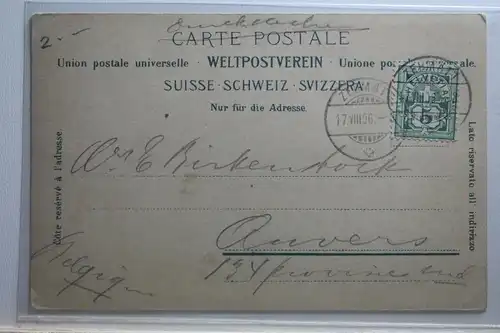 2.-
Drucksache
CARTE POSTALE
Union postale universelle · WELTPOSTVEREIN · Unione postale universale.
SUISSE · SCHWEIZ · SVIZZERA
Nur für die Adresse.
17.VIII.06.-
5
Côté réservé à l'adresse.
Lato riservato all indirizzo
E Birkenstock
Anvers
Belgique
124 Province